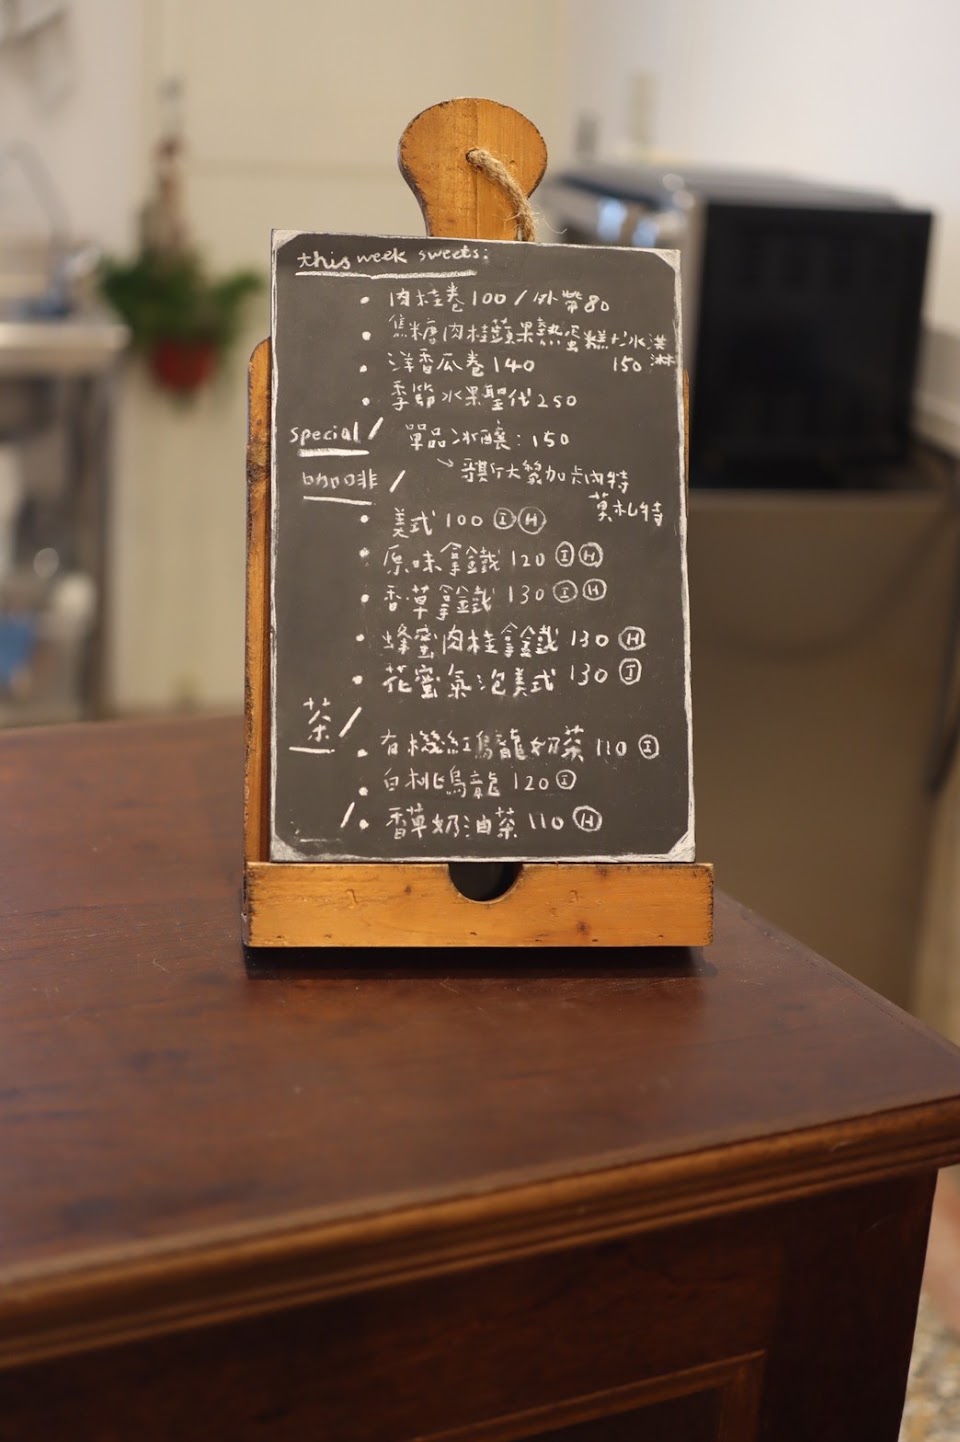 this week sweets:
• 肉桂卷 100 / 外帶 80
• 焦糖肉桂蘋果熱蛋糕+冰淇淋 150
• 洋香瓜卷 140
• 季節水果聖代 250
special / 單品冰釀: 150
加卡內特
莫札特
咖啡 /
• 美式 100 Ⓘ Ⓗ
• 原味拿鐵 120 Ⓘ Ⓗ
• 香草拿鐵 130 Ⓘ Ⓗ
• 蜂蜜肉桂拿鐵 130 Ⓗ
• 花蜜氣泡美式 130 Ⓘ
茶 /
• 有機紅烏龍奶茶 110 Ⓘ
• 白桃烏龍 120 Ⓘ
/ • 香草奶油茶 110 Ⓗ